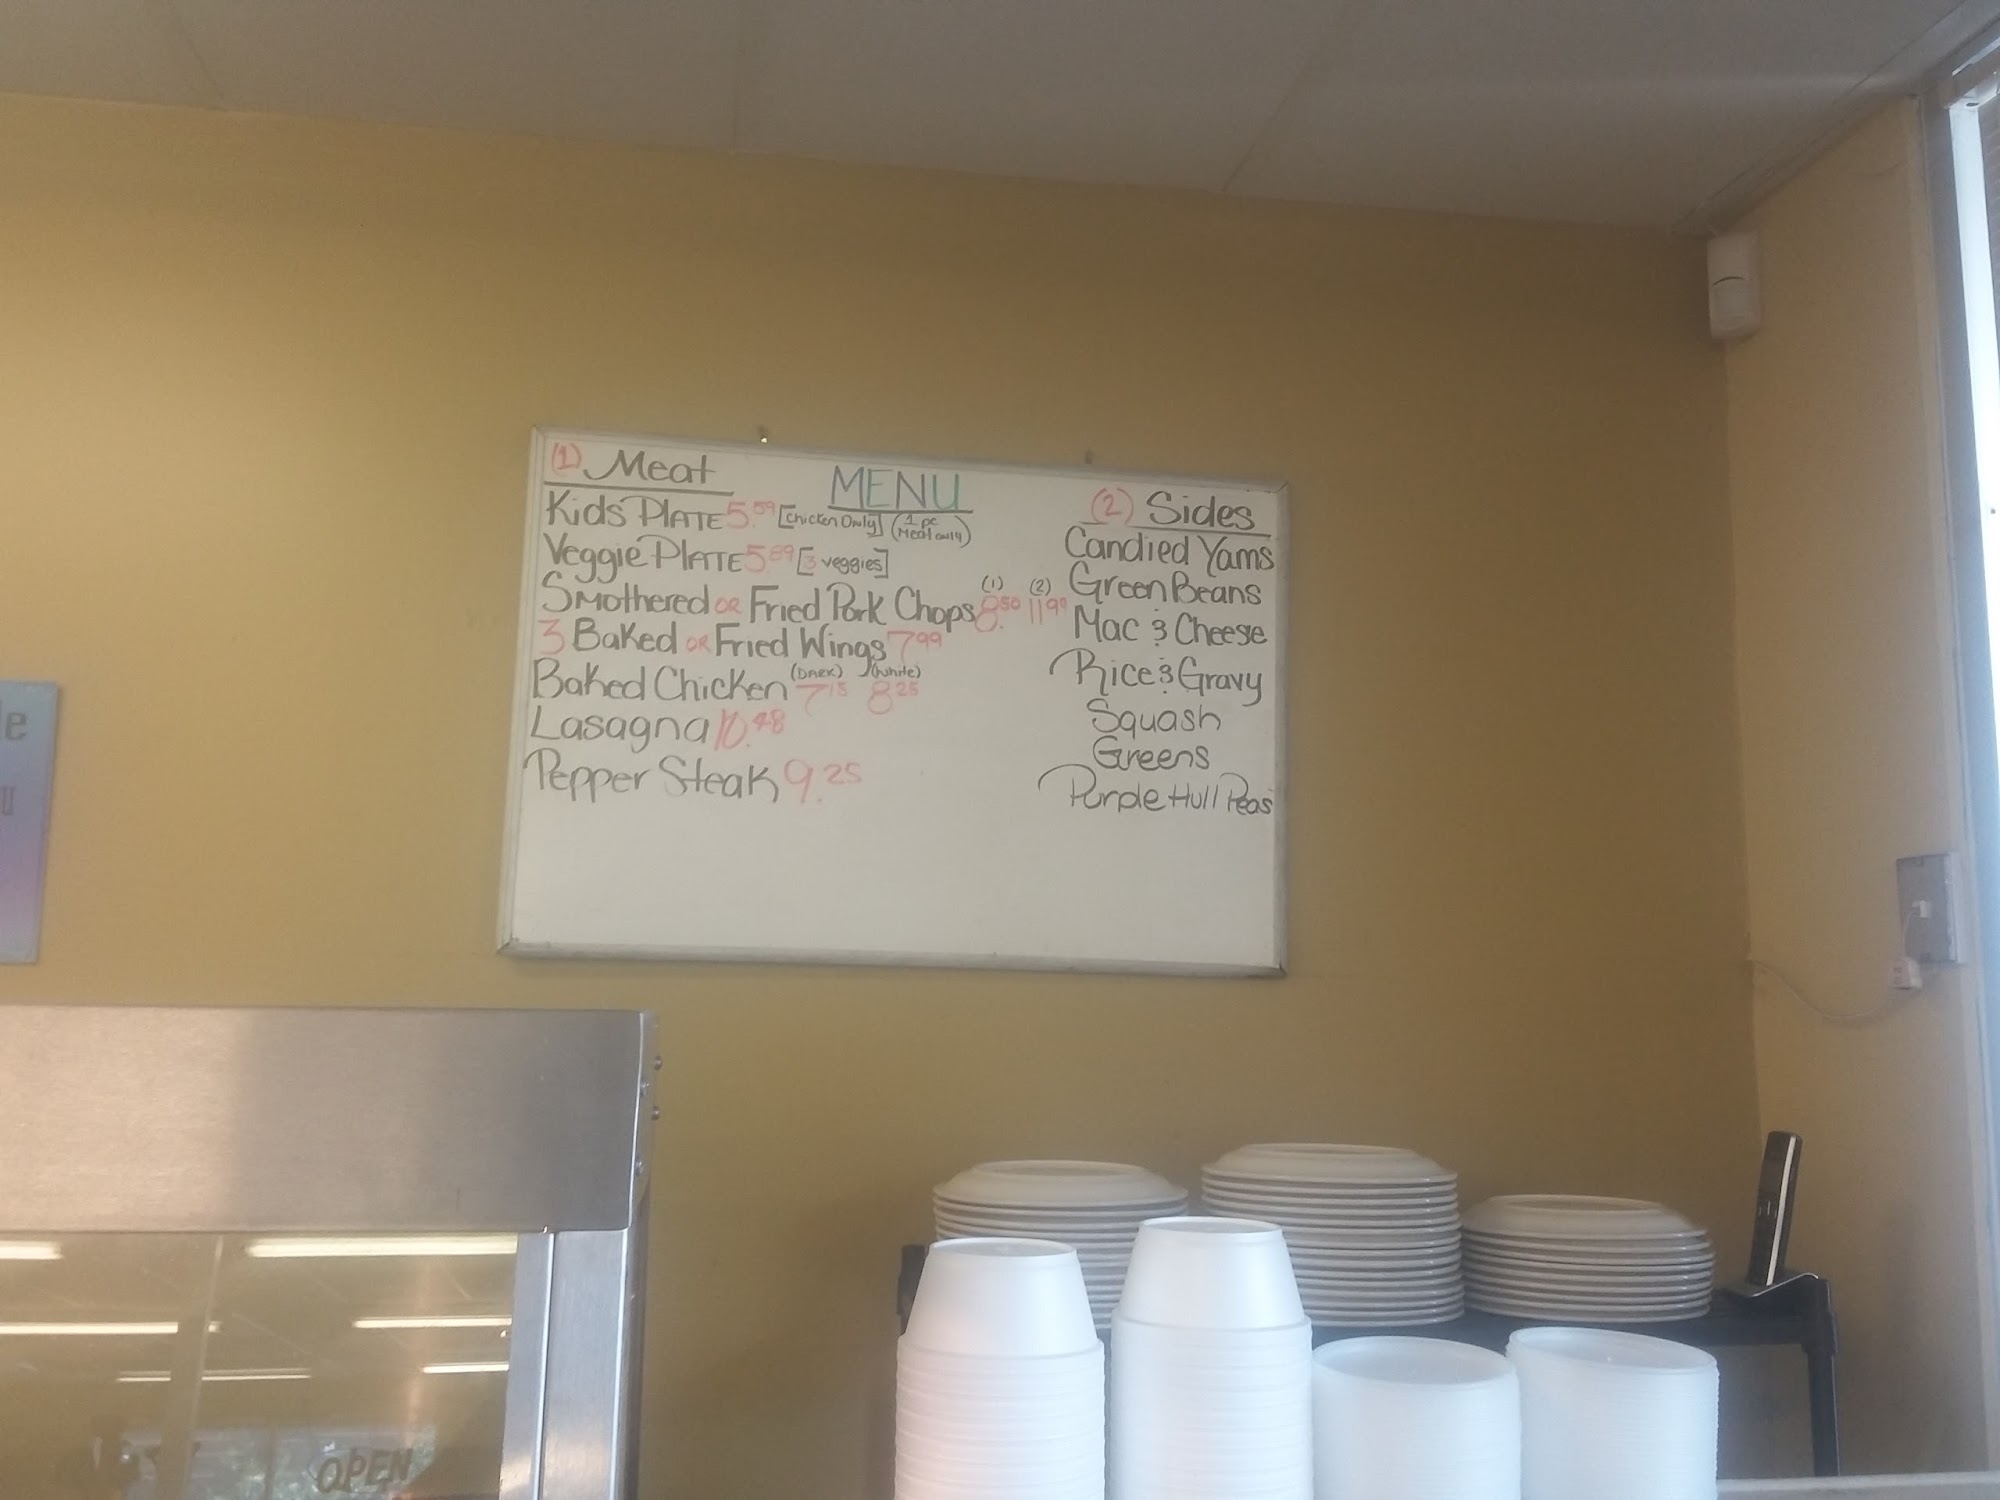 MENU
(1) Meat
Kids' PLATE 5.59 [Chicken Only] (1 pc Meat only)
Veggie PLATE 5.89 [3 veggies]
(1) (2)
Smothered OR Fried Pork Chops 8.50 11.90
3 Baked OR Fried Wings 7.99
(Dark) (White)
Baked Chicken 7.15 8.25
Lasagna 10.48
Pepper Steak 9.25
(2) Sides
Candied Yams
Green Beans
Mac & Cheese
Rice & Gravy
Squash
Greens
Purple Hull Peas
OPEN